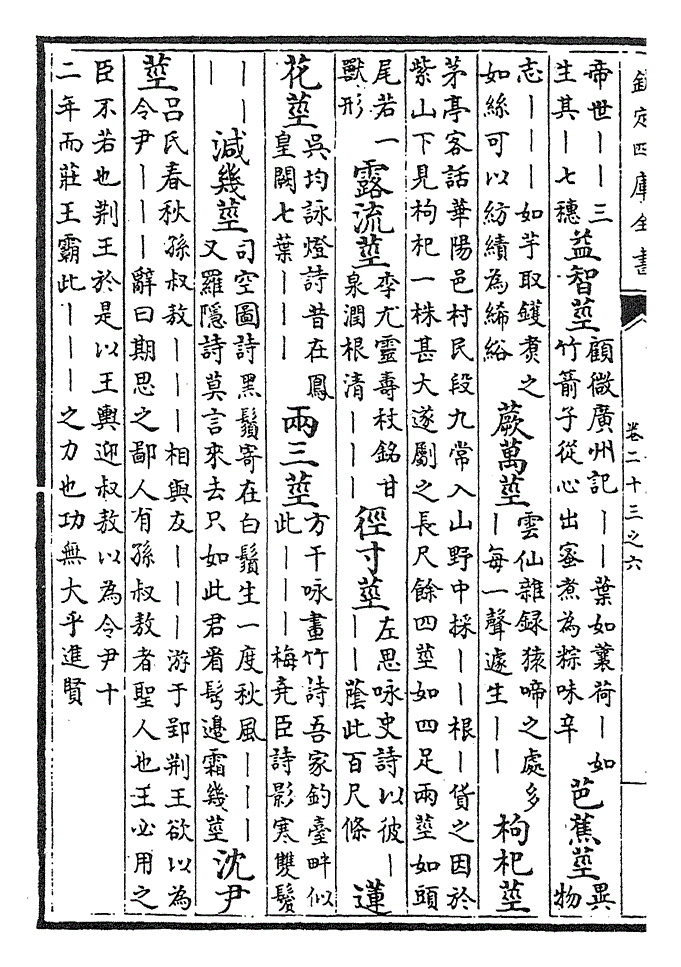 欽定四庫全書
卷二十三之六
帝世｜｜三
生其｜七穗
益智莖
顧微廣州記｜｜葉如蘘荷｜如
竹箭子從心出蜜煮為粽味辛
芭蕉莖
異
物
志｜｜｜如芋取鑊煑之
如絲可以紡績為絺綌
蕨萬莖
雲仙雜録猿啼之處多
｜每一聲遽生｜｜
枸杞莖
茅亭客話華陽邑村民段九常入山野中採｜｜根｜貨之因於
紫山下見枸杞一株甚大遂劚之長尺餘四莖如四足兩莖如頭
尾若一
獸形
露流莖
李尤靈壽杖銘甘
泉潤根清｜｜｜
徑寸莖
左思咏史詩以彼｜
｜｜蔭此百尺條
蓮
花莖
吳均詠燈詩昔在鳳
皇闕七葉｜｜｜
兩三莖
方干咏畫竹詩吾家釣臺畔似
此｜｜｜梅堯臣詩影寒雙鬢
｜｜
｜
減幾莖
司空圖詩黑鬚寄在白鬚生一度秋風｜｜｜
又羅隱詩莫言來去只如此君㸔髩邉霜幾莖
沈尹
莖
吕氏春秋孫叔敖｜｜｜相與友｜｜｜游于郢荆王欲以為
令尹｜｜｜辭曰期思之鄙人有孫叔敖者聖人也王必用之
臣不若也荆王於是以王輿迎叔敖以為令尹十
二年而莊王霸此｜｜｜之力也功無大乎進賢